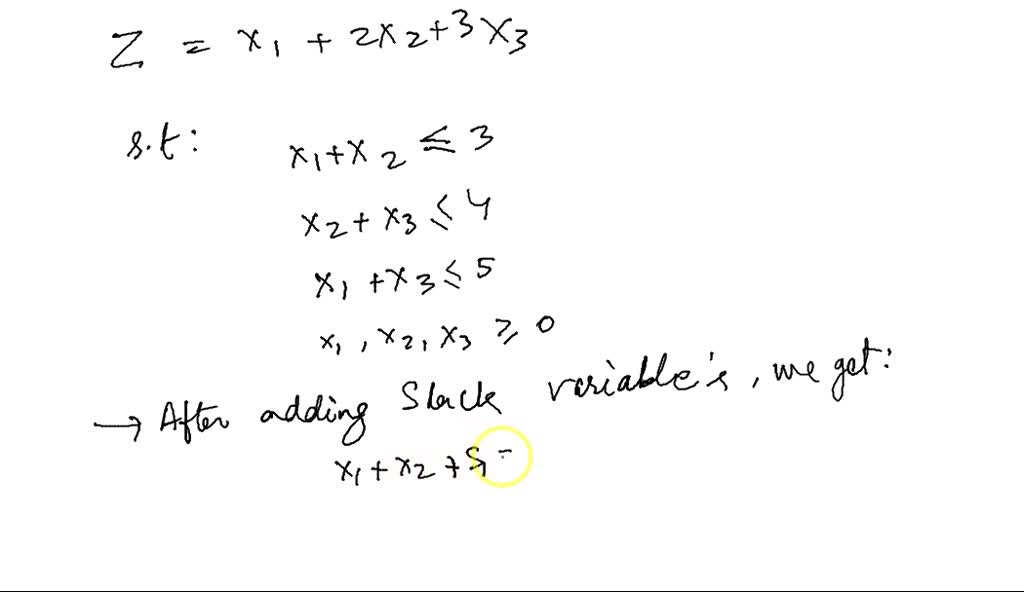 Z = x1 + 2x2 + 3x3
s.t:
x1 + x2 ≤ 3
x2 + x3 ≤ 4
x1 + x3 ≤ 5
x1, x2, x3 ≥ 0
→ After adding Slack variable's, we get:
x1 + x2 + S1 =